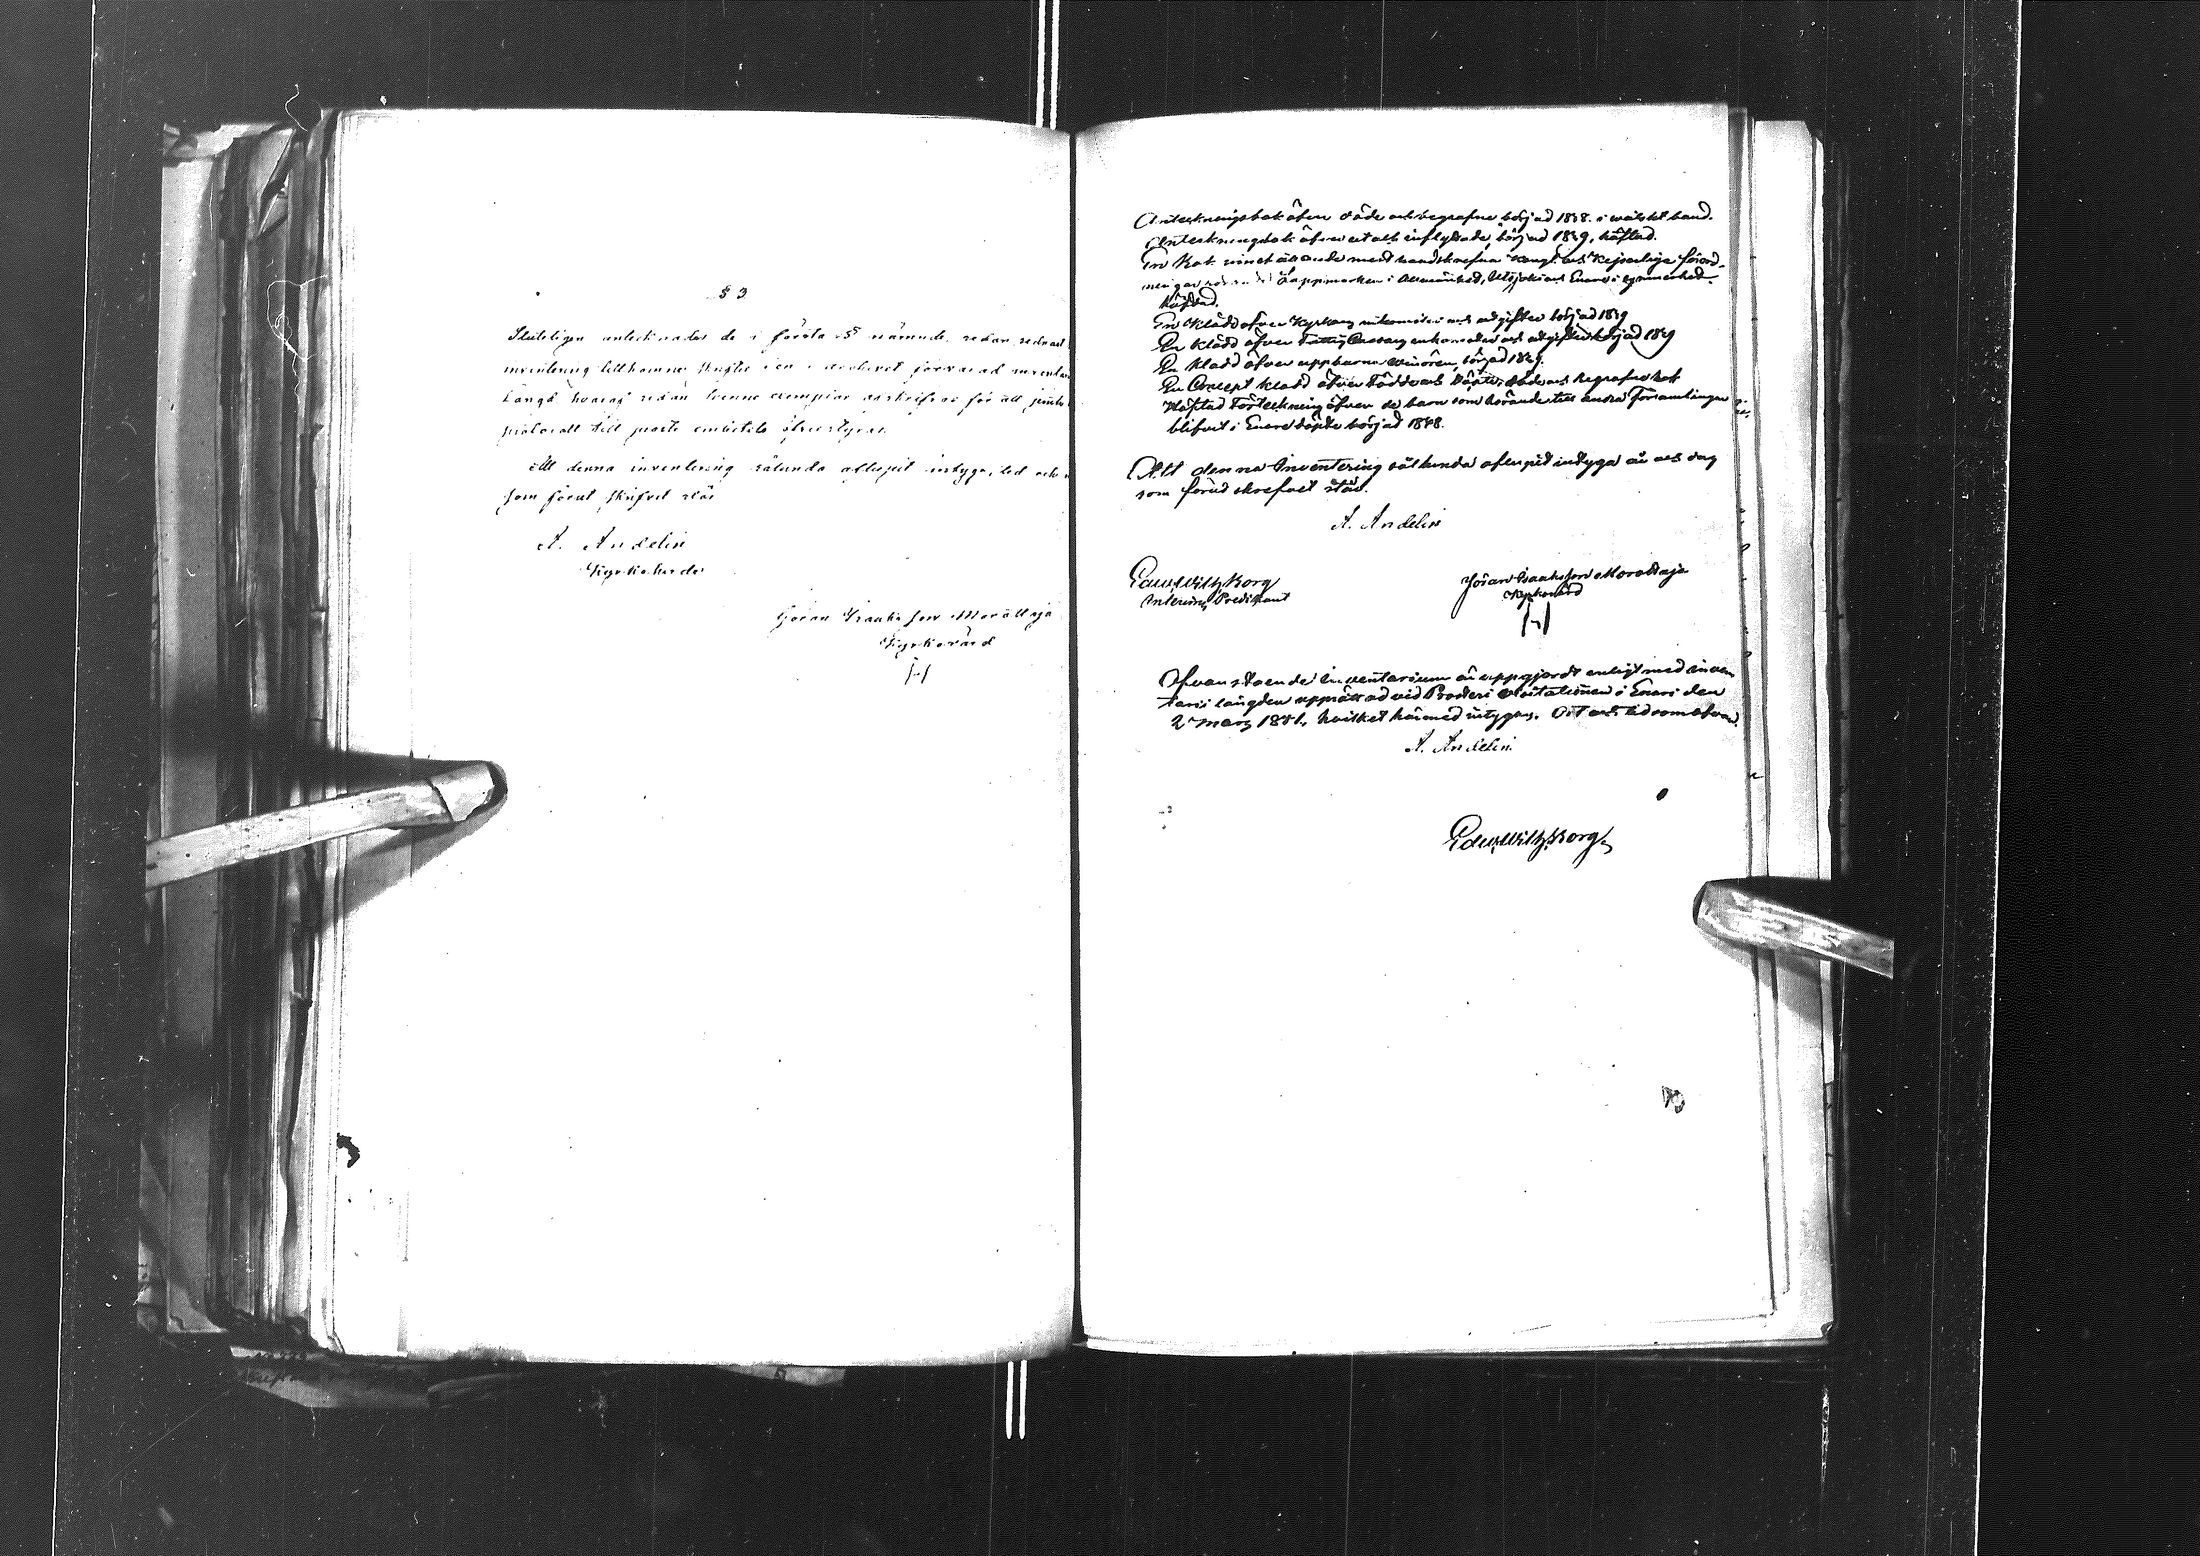 § 3
Slutligen antecknades de i första §§ nämnde, redan sednast
inventering tillkomne skrifter i en i archivet förvarad
Längd hvaraf redan tvenne exemplar afskrifvas för att jemte
protocoll till prosts embetet öfverstyras.
Att denna inventering sålunda aflupit intyga, tid och
som förut skrifvet står
A. Andelin
Kyrkoherde
Göran Isaaksson Morottaja
Kyrkovärd
Anteckningsbok öfver döde och begrafne börjad 1838. i wälskt band.
Anteckningsbok öfver ut och inflyttade, börjad 1839, häftad.
En Bok innehållande med handskrefna Kongl. och Kejserliga förord-
ningar Lappmarken i Allmänhet, Utsjoki och Enare i synnerhet.
häftad.
En Kladd öfver Kyrkans inkomster och utgifter börjad 1839
En kladd öfver Fattig Cassans inkomster och utgifter börjad 1839
En kladd öfver uppburne, börjad 1839.
En Concept kladd öfver födde och döpte, döde och begrafne
Häftad Förteckning öfver de barn som hörande till andra församlingar
blifvit i Enare döpte börjad 1848.
Att denna Inventering sålunda aflupit intyga år och dag
som förut skrefvet står.
A. Andelin
Edw. Wilh. Borg
Interims Predikant
Göran Isaaksson Morottaja
Kyrkovärd
Ofvanstående Inventarium är uppgjordt enligt med inven
tarii längden upprättad vid Prosteri visitationen i Enare den
2 Mars 1851, hvilket härmed intygas. Ort och tid som ofvan.
A. Andelin
Edw. Wilh. Borg.